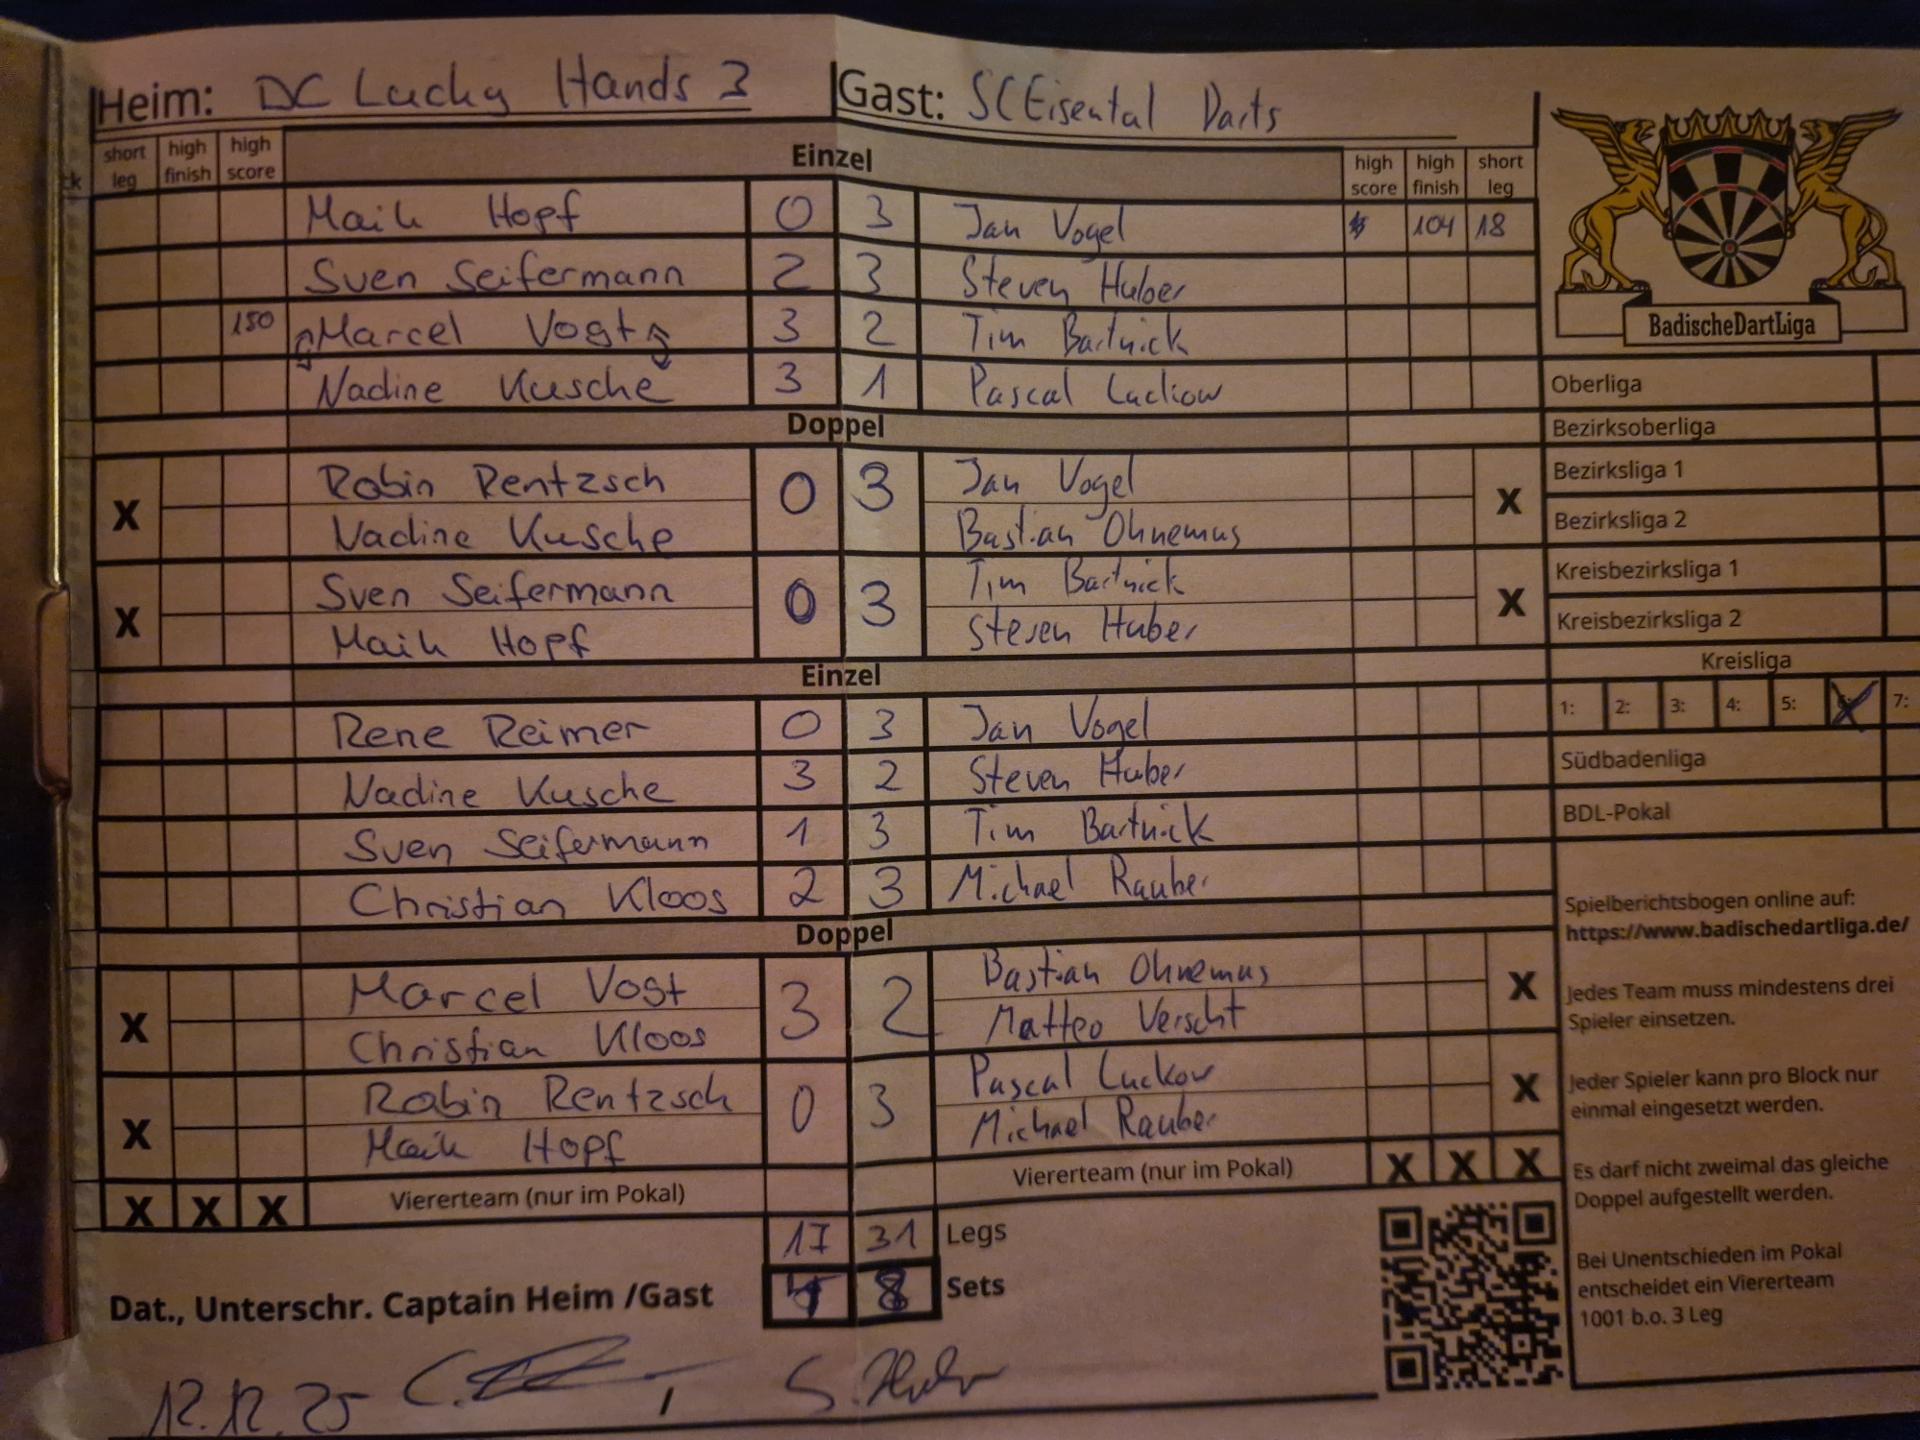 Heim: DC Lucky Hands 3 Gast: SCEisental Darts
short leg high finish high score Einzel high score high finish short leg
Maik Hopf 0 3 Jan Vogel 104 18
Sven Seifermann 2 3 Steven Huber
150 Marcel Vogt 3 2 Tim Bartnick
Nadine Kusche 3 1 Pascal Luckow
Doppel
X Robin Rentzsch 0 3 Jan Vogel X
Nadine Kusche Bastian Ohnemus
X Sven Seifermann 0 3 Tim Bartnick X
Maik Hopf Steven Huber
Einzel
Rene Reimer 0 3 Jan Vogel
Nadine Kusche 3 2 Steven Huber
Sven Seifermann 1 3 Tim Bartnick
Christian Kloos 2 3 Michael Rauber
Doppel
X Marcel Vogt 3 2 Bastian Ohnemus X
Christian Kloos Matteo
X Robin Rentzsch 0 3 Pascal Luckow X
Maik Hopf Michael Rauber
X X X Vierterteam (nur im Pokal) Viererteam (nur im Pokal) X X X
17 31 Legs
Dat., Unterschr. Captain Heim /Gast 4 8 Sets
12.12.25 / S. Huber
BadischeDartLiga
Oberliga
Bezirksoberliga
Bezirksliga 1
Bezirksliga 2
Kreisbezirksliga 1
Kreisbezirksliga 2
Kreisliga
1: 2: 3: 4: 5: 7:
Südbadenliga
BDL-Pokal
Spielberichtsbogen online auf:
https://www.badischedartliga.de/
Jedes Team muss mindestens drei
Spieler einsetzen.
Jeder Spieler kann pro Block nur
einmal eingesetzt werden.
Es darf nicht zweimal das gleiche
Doppel aufgestellt werden.
Bei Unentschieden im Pokal
entscheidet ein Viererteam
1001 b.o. 3 Leg